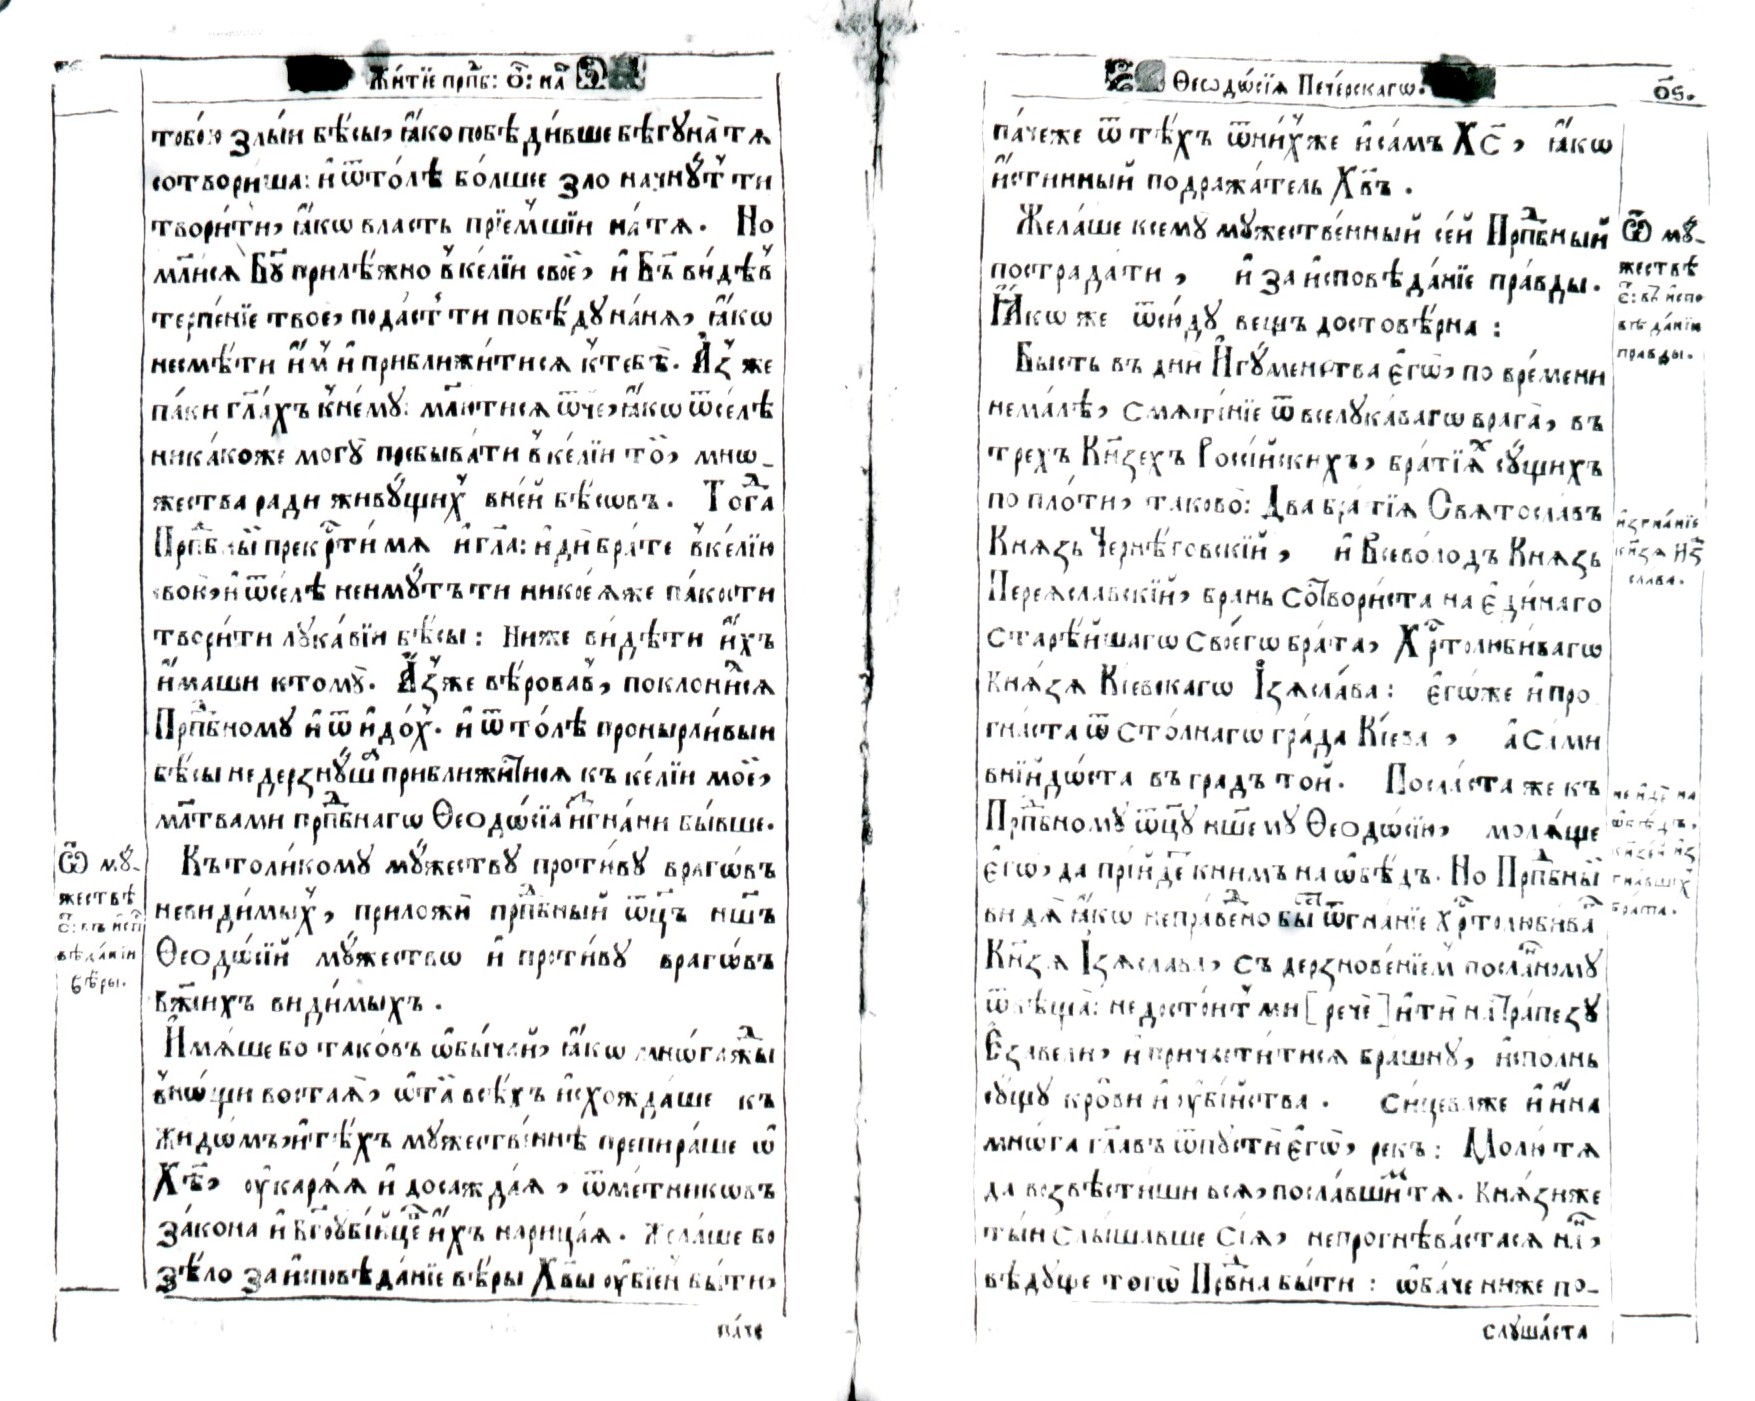 Житїе прпⷣб: ѻ҃: на҃
тобо́ю злы́и бѣ́сы, ꙗ҆́ко побѣди́вше бѣгꙋна̀ тѧ
сотвори́ша: и҆ ѿто́лѣ бо́лшее зло начнꙋ́тъ ти
твори́ти, ꙗ҆́кѡ власть прїе́мшїи на́ тѧ. Но
мл҃исѧ Бг҃ꙋ прилѣ́жно в̾ ке́лїи свое́й, и҆ Бг҃ъ ви́дѣв̾
терпе́нїе твоѐ, пода́стъ ти побѣ́дꙋ на́ нѧ, ꙗ҆́кѡ
несмѣ́ти и҆̀м̾ и҆ приближи́тисѧ к̾ тебѣ̀. А҆́з̾ же
па́ки гл҃ахъ к̾ немꙋ̀: мл҃ютисѧ ѿч҃е, ꙗ҆́кѡ ѿсе́лѣ
ника́коже могꙋ̀ пребыва́ти в̾ ке́лїи то́й, мнѡ_
жества ради живꙋ́щих̾ в не́й бѣ́сѡвъ. Тогⷣа
Прпⷣбный прекрⷭти́ мѧ и҆ гл҃а: и҆ди̇̀ бра́те в̾ ке́лїю
свою̀, и҆ ѿсе́лѣ неимꙋ́тъ ти никое́ѧже па́кости
твори́ти лꙋка́вїи бѣ́сы: Ниже ви́дѣти и҆́хъ
и҆́маши ктомꙋ̀. А҆́з̾ же вѣ́ровав̾, поклони́хсѧ
Прпⷣбномꙋ и҆ ѿидо́х̾. и҆ ѿто́лѣ проныри́выи
бѣ́сы недерзнꙋ́ша приближи́тисѧ къ ке́лїи мое́й,
мл҃твами прпⷣбнагѡ Ѳеодѡ́сїа и҆згна́ни бы́вше.
Къ толи́комꙋ мꙋ́жествꙋ проти́вꙋ врагѡ́въ
неви́димых̾, приложѝ прпⷣбный ѿц҃ъ нш҃ъ
Ѳеодѡ́сїй мꙋ́жествѡ и҆ проти́вꙋ врагѡ́въ
Бж҃їихъ ви́димыхъ.
И҆мѧ́ше бо тако́въ ѡ҆бы́чай, ꙗ҆́кѡ мнѡ́гаждⷣы
в̾ нѡ́щи воста́ѧ, ѡ҆та́й всѣ́хъ и҆схожда́ше къ
Жидѡ́мъ, и҆ тѣ́хъ мꙋ́жественнѣ препира́ше ѡ
Хⷭ҇ѣ, ᲂу҆карѧ́ѧ и҆ досажда́ѧ, ѿме́тникѡвъ
зако́на и҆ Бг҃оᲂубі́йцевъ и҆́хъ нарица́ѧ. Жела́ше бо
зѣ́ло за и҆сповѣ́данїе вѣ́ры Хв҃ы ᲂу҆бїе́н̾ бы́ти,
па́че
Ѿ мꙋ́_
жествѣ
є҆г҃ѡ: въ и҆спо
вѣ́данїи
вѣ́ры.
Ѳеодѡ́сїѧ Пече́рскагѡ.
о҃ѕ.
па́чеже ѿ тѣ́хъ ѿ ни́х̾же и҆ са́мъ Хⷭ҇, ꙗ҆́кѡ
и҆́стинный подража́тель Хв҃ъ.
Жела́ше ксемꙋ мꙋ́жественный се́й Прпⷣбный
пострада́ти, и҆ за и҆сповѣ́данїе пра́вды.
Ꙗ҆́кѡ же ѿсю́дꙋ вещъ достовѣ́рна:
Бысть въ днѝ И҆гꙋ́менства є҆гѡ̀, по вре́мени
нема́лѣ, смѧте́нїе ѿ вселꙋка́вагѡ врага̀, въ
трехъ Кнⷭ҇зехъ Россі́йскихъ, бра́тїѧх̾ сꙋ́щихъ
по пло́ти, таково̀: Два бра́тїѧ Свѧтосла́въ
Кнѧзь Черне́говскїй, и҆ Все́володъ Кнѧзь
Переѧсла́вскїй, бра́нь сотвори́ста на є҆ди́наго
старѣ́йшагѡ своегѡ̀ бра́та, Хрⷭтолюби́вагѡ
Кнѧ́зѧ Кі́евскагѡ І҆зѧсла́ва: є҆гѡ́же и҆ про
гна́ста ѿ сто́лнагѡ гра́да Кі́ева, а҆ са́ми
внїйдѡ́ста въ градъ той. Посла́ста же къ
Прпⷣбномꙋ ѿц҃ꙋ нш҃емꙋ Ѳеодѡ́сїю, молѧ́ще
є҆гѡ̀, да прїи́де к ни́мъ на ѡ҆бѣ́дъ. Но Прпⷣбный
ви́дѧ ꙗ҆́кѡ непра́ведно бы́сть ѿгна́нїе Хрⷭтолюби́ваго
Кнⷭ҇зѧ І҆зѧсла́ва, съ дерзнове́нїем̾ посла́нномꙋ
ѿвѣща̀: недосто́ит̾ ми [речѐ] и҆тѝ на тра́пезꙋ
Є҆заве́ли, и҆ причасти́тисѧ бра́шнꙋ, и҆спо́лнь
сꙋ́щꙋ кро́ви и҆ ᲂу҆бі́йства. Сицева́же и҆ и҆́на
мнѡ́га гл҃авъ ѿпꙋстѝ є҆гѡ̀, рекъ: Молю́ тѧ
да возвѣсти́ши всѧ̀, посла́вшим̾ тѧ. Кнѧ́зиже
ты́и слы́шавше сїѧ̀, непрогнѣ́вастасѧ на́нь,
вѣ́дꙋще того̀ Првⷣна бы́ти: ѡ҆ба́че ниже по_
слꙋша́ста
Ѿ мꙋ́_
жествѣ
є҆г҃ѡ: въ и҆спо
вѣ́данїи
пра́вды.
и҆згна́нїе
кнⷭ҇зѧ И҆зѧ
сла́ва.
не и҆́де на
ѡ҆бѣ́дъ,
кнⷭ҇зей и҆з
гна́вших̾
бра́та.